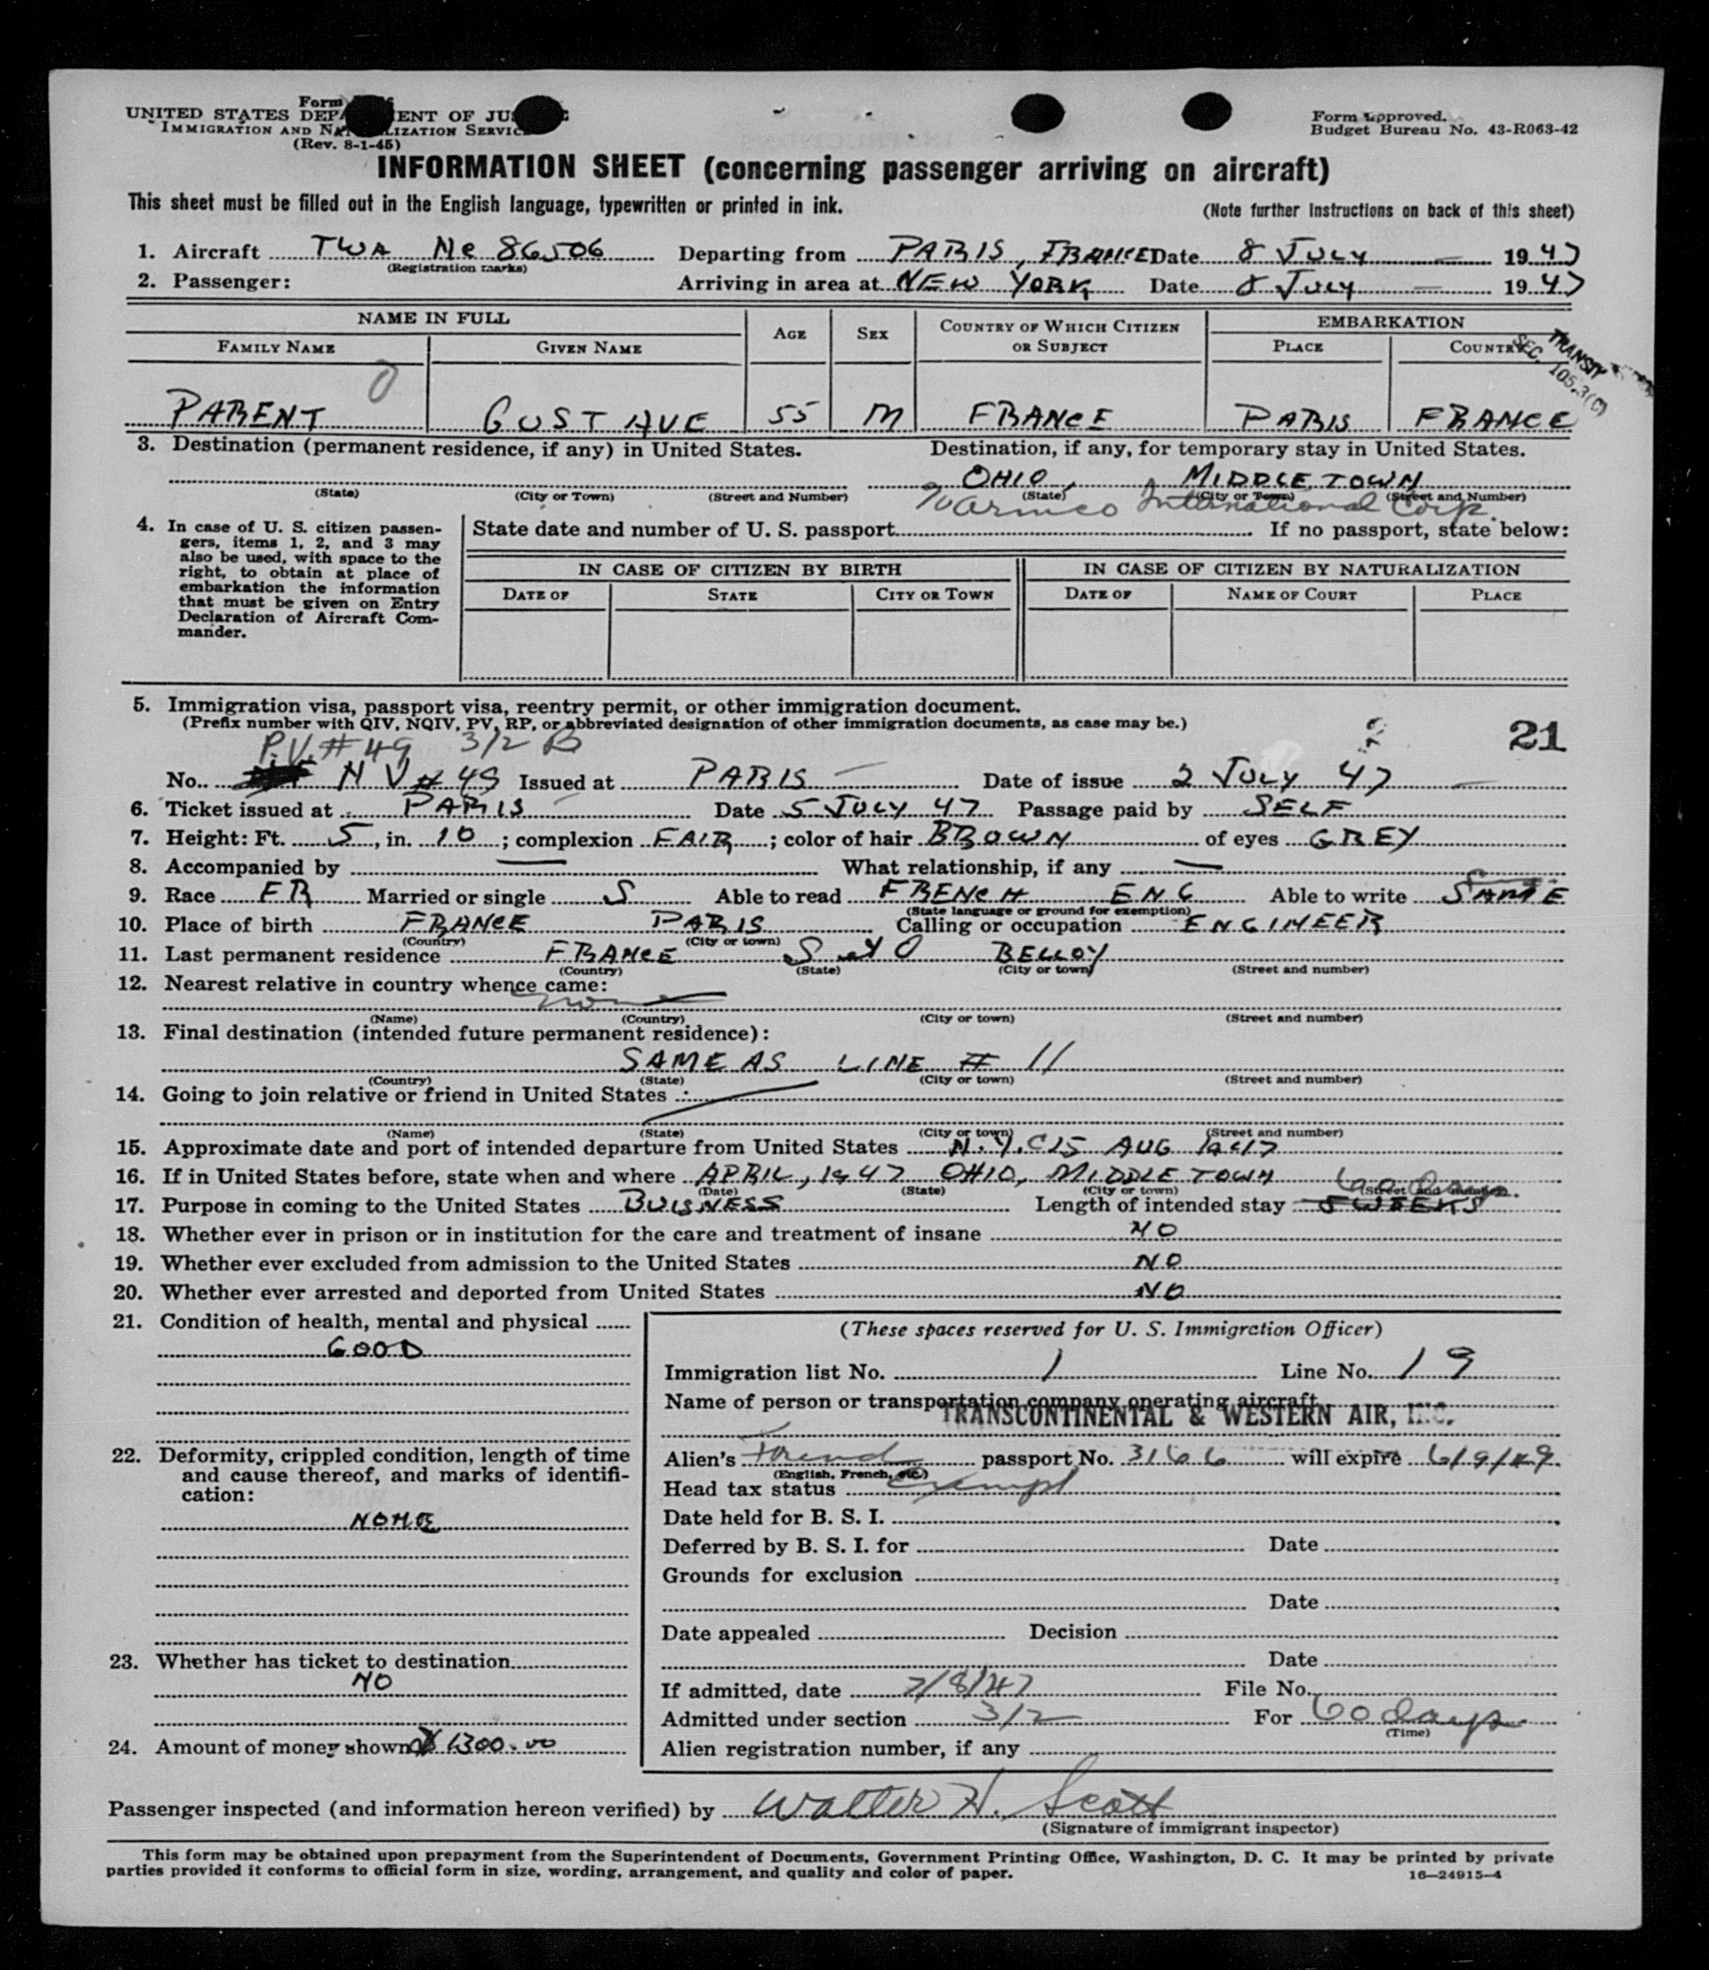 Form
UNITED STATES DEPA ENT OF JUS
IMMIGRATION AND NA LIZATION SERVIC
(Rev. 8-1-45)
Form approved.
Budget Bureau No. 43-R063-42
INFORMATION SHEET (concerning passenger arriving on aircraft)
This sheet must be filled out in the English language, typewritten or printed in ink.
(Note further instructions on back of this sheet)
1. Aircraft TWA Nc 86506 Departing from PARIS, FRANCE Date 8 JULY 1947
(Registration marks)
2. Passenger: Arriving in area at NEW YORK Date 8 JULY 1947
NAME IN FULL AGE SEX COUNTRY OF WHICH CITIZEN OR SUBJECT EMBARKATION
FAMILY NAME GIVEN NAME PLACE COUNTRY
TRANSIT
SEC. 105.3(C)
0
PARENT GUSTAVE 55 M FRANCE PARIS FRANCE
3. Destination (permanent residence, if any) in United States. Destination, if any, for temporary stay in United States.
OHIO, MIDDLETOWN
(State) (City or Town) (Street and Number) (State) (City or Town) (Street and Number)
International Corp.
4. In case of U. S. citizen passen-
gers, items 1, 2, and 3 may
also be used, with space to the
right, to obtain at place of
embarkation the information
that must be given on Entry
Declaration of Aircraft Com-
mander.
State date and number of U. S. passport If no passport, state below:
IN CASE OF CITIZEN BY BIRTH IN CASE OF CITIZEN BY NATURALIZATION
DATE OF STATE CITY OR TOWN DATE OF NAME OF COURT PLACE
5. Immigration visa, passport visa, reentry permit, or other immigration document.
(Prefix number with QIV, NQIV, PV, RP, or abbreviated designation of other immigration documents, as case may be.)
21
P.V. # 49 3/2 B
No. N V # 49 Issued at PARIS Date of issue 2 JULY 47
6. Ticket issued at PARIS Date 5 JULY 47 Passage paid by SELF
7. Height: Ft. 5, in. 10; complexion FAIR; color of hair BROWN of eyes GREY
8. Accompanied by — What relationship, if any —
9. Race FR Married or single S Able to read FRENCH ENG Able to write SAME
(State language or ground for exemption)
10. Place of birth FRANCE PARIS Calling or occupation ENGINEER
(Country) (City or town)
11. Last permanent residence FRANCE S et O BELLOY
(Country) (State) (City or town) (Street and number)
12. Nearest relative in country whence came:
none
(Name) (Country) (City or town) (Street and number)
13. Final destination (intended future permanent residence):
SAME AS LINE # 11
(Country) (State) (City or town) (Street and number)
14. Going to join relative or friend in United States
(Name) (State) (City or town) (Street and number)
15. Approximate date and port of intended departure from United States N.Y.C 15 AUG 1947
16. If in United States before, state when and where APRIL, 1947 OHIO, MIDDLETOWN
(Date) (State) (City or town) (Street and number)
60 days.
17. Purpose in coming to the United States BUISNESS Length of intended stay 5 WEEKS
18. Whether ever in prison or in institution for the care and treatment of insane NO
19. Whether ever excluded from admission to the United States NO
20. Whether ever arrested and deported from United States NO
21. Condition of health, mental and physical
GOOD
22. Deformity, crippled condition, length of time
and cause thereof, and marks of identifi-
cation:
NONE
23. Whether has ticket to destination
NO
24. Amount of money shown $ 1300.00
(These spaces reserved for U. S. Immigration Officer)
Immigration list No. 1 Line No. 19
Name of person or transportation company operating aircraft
TRANSCONTINENTAL & WESTERN AIR, INC.
Alien's French passport No. 3166 will expire 6/9/49.
(English, French, etc.)
Head tax status exempt
Date held for B. S. I.
Deferred by B. S. I. for Date
Grounds for exclusion
Date
Date appealed Decision
Date
If admitted, date 7/8/47 File No.
Admitted under section 3/2 For 60 days
(Time)
Alien registration number, if any
Passenger inspected (and information hereon verified) by Walter H. Scott
(Signature of immigrant inspector)
This form may be obtained upon prepayment from the Superintendent of Documents, Government Printing Office, Washington, D. C. It may be printed by private
parties provided it conforms to official form in size, wording, arrangement, and quality and color of paper.
16—24915-4